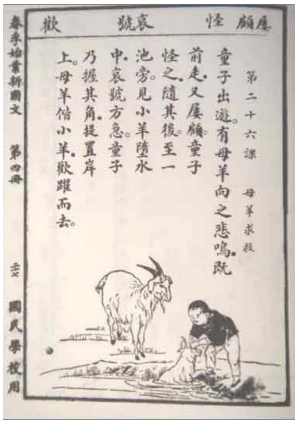 屢顧 怪 哀號 歡
第二十六課 母羊求救
童子出遊。有母羊向之悲鳴。既
前走。又屢顧。童子
怪之。隨其後。至一
池旁。見小羊墮水
中。哀號方急。童子
乃握其角。提置岸
上。母羊偕小羊。歡躍而去。
春季始業新國文 第四冊 國民學校用